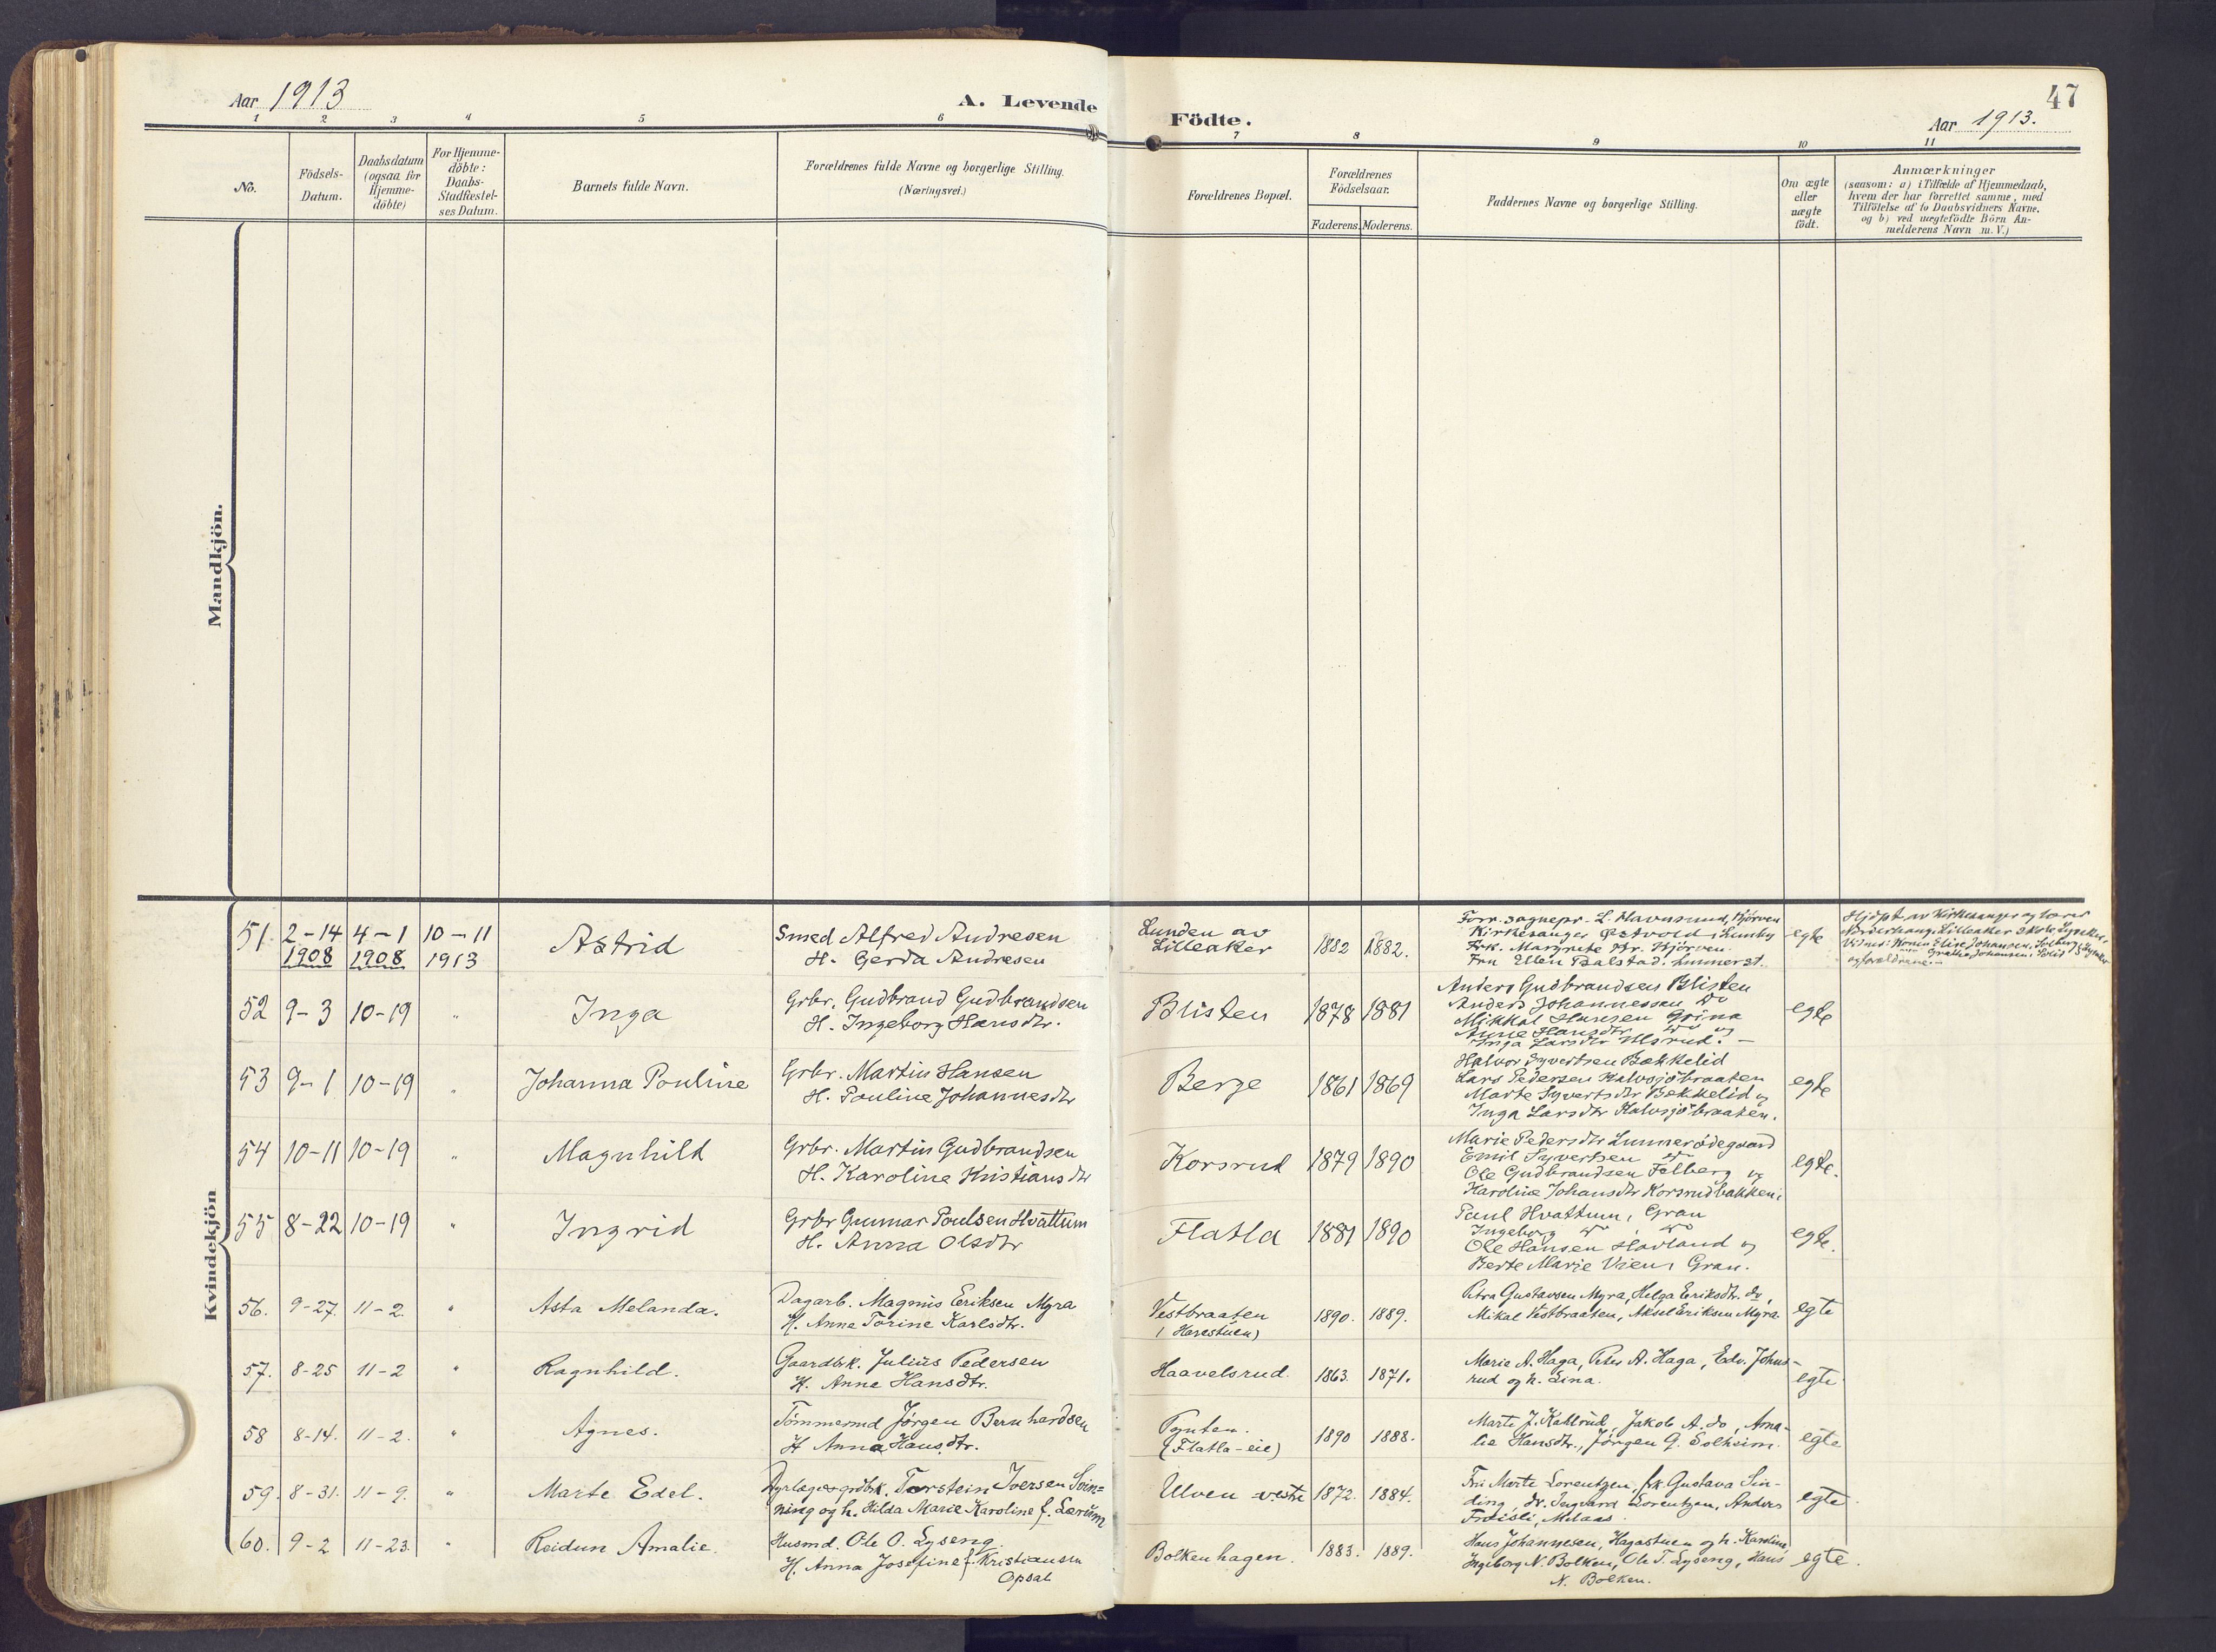 47
Aar 1913
A. Levende
Födte.
Aar 1913.
1 2 3 4 5 6 7 8 9 10 11
No.
Födsels-
Datum.
Daabsdatum
(ogsaa for
Hjemme-
döbte)
For Hjemme-
döbte:
Daabs-
Stadfæstel-
ses Datum.
Barnets fulde Navn.
Forældrenes fulde Navne og borgerlige Stilling.
(Næringsvei.)
Forældrenes Bopæl.
Forældrenes
Födselsaar.
Faderens. Moderens.
Faddernes Navne og borgerlige Stilling.
Om ægte
eller
uægte
födt.
Anmærkninger
(saasom: a) i Tilfælde af Hjemmedaab,
hvem der har forrettet samme, med
Tilföielse af to Daabsvidners Navne,
og b) ved uægtefödte Börn An-
melderens Navn m. V.)
Mandkjön.
Kvindekjön
51. 2-14 4-1 10-11
1908 1908 1913
Astrid
Smed Alfred Andresen
H. Gerda Andresen
Lunden av
Lilleaker
1882 1882.
Forr. sognepr. L. Havnsund, Kjörven
Kirkesanger Østvold, Lunby
Frk. Margrete Kjörven
Fru Ellen Balstad.
egte
Hjdpt av Kirkesanger og lærer
Lilleaker skole,
Vidner: Konen Elise Johansen, Solberg,
og forældrene.
52 9-3 10-19 "
Inga
Grbr. Gudbrand Gudbrandsen
H. Ingeborg Hansdtr.
Blisten
1878 1881
Anders Gudbrandsen Blisten
Anders Johannessen do
Mikkal Hansen Grina
Anne Hansdtr do og
Inga Larsdtr Ulsrud. —
egte
53 9-1 10-19 "
Johanna Pouline
Grbr. Martin Hansen
H. Pouline Johannesdtr
Berge
1861 1869
Halvor Syvertsen Bækkelid
Lars Pedersen Kalvsjöbraaten
Marte Syvertsdtr Bekkelid og
Inga Larsdtr Kalvsjöbraaten.
egte
54 10-11 10-19 "
Magnhild
Grbr. Martin Gudbrandsen
H. Karoline Kristiansdtr
Korsrud
1879 1890
Marie Pedersdtr Lunnerödegaard
Emil Syvertsen do
Ole Gudbrandsen Felberg og
Karoline Johansdtr Korsrudbakken.
egte.
55 8-22 10-19 "
Ingrid
Grbr Gunnar Poulsen Hvattum
H. Anna Olsdtr
Flatla
1881 1890
Paul Hvattum, Gran
Ingeborg do, do
Ole Hansen Hovland og
Berte Marie Vien, Gran.
egte.
56. 9-27. 11-2. "
Asta Melanda.
Dagarb. Magnus Eriksen Myra
H. Anne Torine Karlsdtr.
Vestbraaten
(Harestuen)
1890. 1889.
Petra Gustavsen Myra, Helga Eriksdtr. do,
Mikal Vestbraaten, Aksel Eriksen Myra.
egte
57. 8-25 11-2 "
Ragnhild.
Gaardbrk. Julius Pedersen
H. Anne Hansdtr.
Haavelsrud.
1863. 1871.
Marie A. Haga, Peter A. Haga, Edv. Johns-
rud og h. Lina.
egte
58 8-14. 11-2. "
Agnes.
Tömmermd Jörgen Bernhardsen
H Anna Hansdtr.
Tynten.
(Flatla-eie)
1890 1888.
Marte J. Kahlrud, Jakob A. do, Ama-
lie Hansdtr., Jörgen G. Solheim.
egte
59. 8-31. 11-9. "
Marte Edel.
Dyrlæge og grdbrk. Torstein Iversen Svin-
ning og h. Hilda Marie Karoline f. Lærum
Ulven vestre
1872. 1884.
Fru Marte Lorentzen, frk Gustava Sin-
ding, dr. Ingvard Lorentzen, Anders
Froisli, Melaas.
egte.
60. 9-2 11-23. "
Reidun Amalie.
Husmd. Ole O. Lyseng.
H. Anna Josefine f. Kristiansen
Opsal
Bolkenhagen.
1883. 1889.
Hans Johannesen, Hagastuen og h. Karoline,
Ingeborg N. Bolken, Ole T. Lyseng, Hans
N. Bolken.
egte.